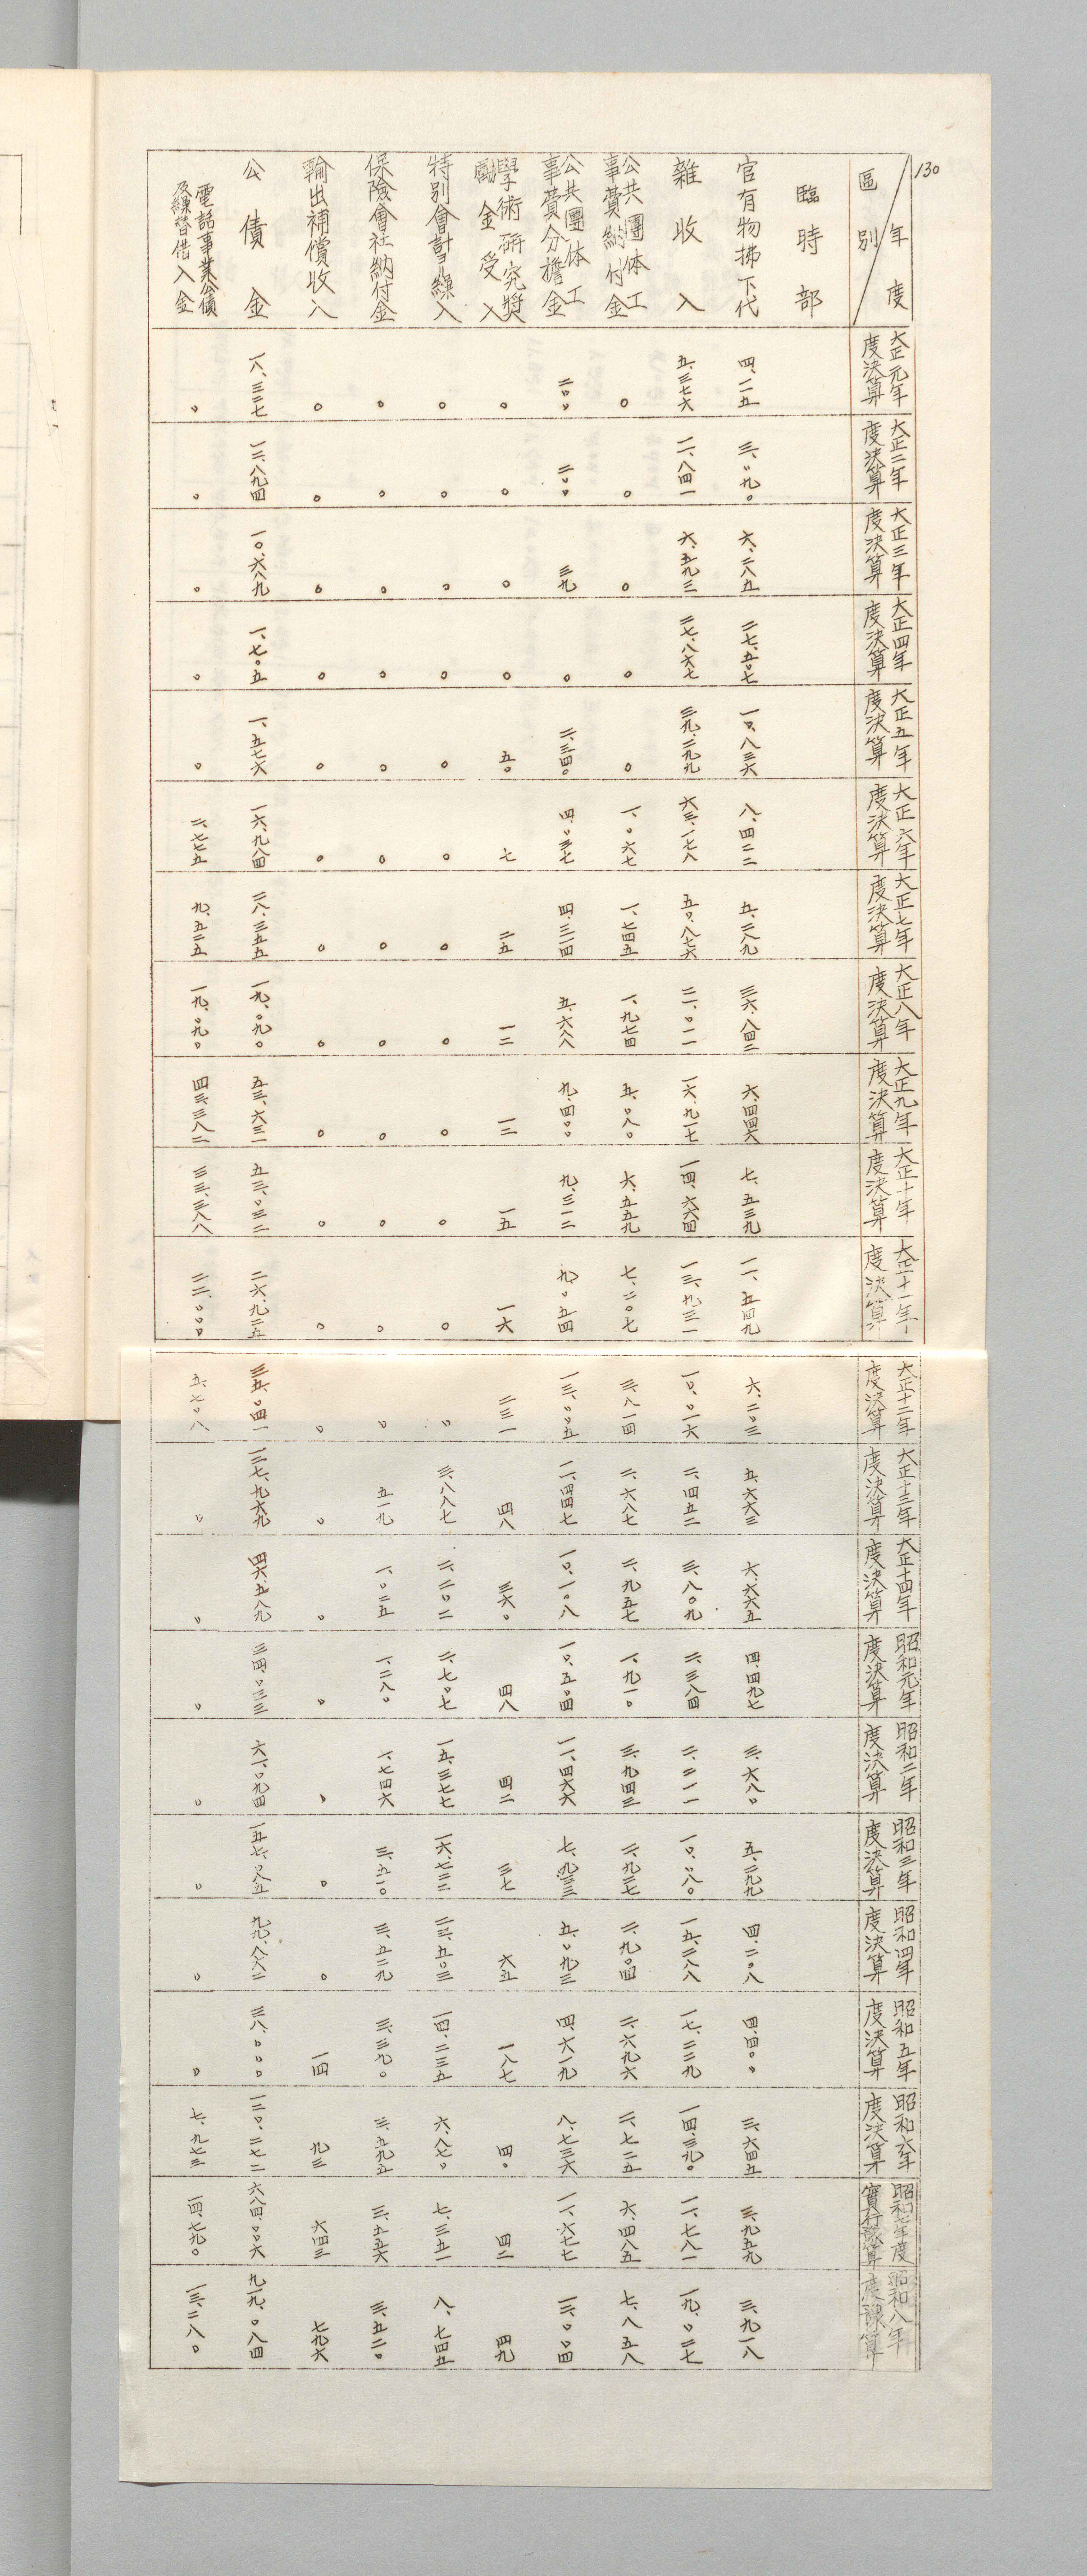 130
區別 年度 大正元年度決算 大正二年度決算 大正三年度決算 大正四年度決算 大正五年度決算 大正六年度決算 大正七年度決算 大正八年度決算 大正九年度決算 大正十年度決算 大正十一年度決算 大正十二年度決算 大正十三年度決算 大正十四年度決算 昭和元年度決算 昭和二年度決算 昭和三年度決算 昭和四年度決算 昭和五年度決算 昭和六年度決算 昭和七年度實行豫算 昭和八年度豫算
臨時部
官有物拂下代 四、一一五 三、〇九〇 六、二八五 二七、五〇七 一〇、八三六 八、四二二 五、二八九 三六、八四二 六、四四六 七、五三九 一一、五四九 六、二〇三 五、六六三 六、六六五 四、四九七 三、六八〇 五、二九九 四、二〇八 四、四〇〇 三、六四五 三、九五九 三、九一八
雜收入 五、三七六 一一、八四一 六、五九三 二七、八六七 三九、二九九 六三、一七八 五〇、八七六 二一、〇一一 一六、九一七 一四、六六四 一三、九三一 一〇、〇一六 二、四五二 三、八〇九 二、三八四 二、二一一 一〇、〇八〇 一五、二八八 一七、二二九 一四、三九〇 一一、七八一 一九、〇二七
公共團体工事費納付金 〇 〇 〇 〇 〇 一、〇六七 一、七四五 一、九七四 五、〇八〇 六、五五九 七、二〇七 三、八一四 二、六八七 二、九五七 一、九一〇 三、九四三 二、九二七 二、九〇四 二、六九六 二、七二五 六、四八五 七、八五八
公共團体工事費分擔金 二〇〇 二〇〇 三九 〇 二、三四〇 四、〇三七 四、三二四 五、六八八 九、四〇〇 九、三一二 九、〇五四 一三、〇〇五 一一、四四七 一〇、一〇八 一〇、五〇四 一一、四六六 七、九三三 五、〇九三 四、六一九 八、七三六 一一、六七七 一三、〇〇四
學術研究奬勵金受入 〇 〇 〇 〇 五〇 七 二五 一二 一二 一五 一六 二三一 四八 三六〇 四八 四二 三七 六五 一八七 四〇 四二 四九
特別會計ヨリ繰入 〇 〇 〇 〇 〇 〇 〇 〇 〇 〇 〇 〇 三、八八七 二、二〇二 二、七〇七 一五、三七七 一六、七三二 二三、五〇三 一四、二三五 六、八七〇 七、三五一 八、七四五
保險會社納付金 〇 〇 〇 〇 〇 〇 〇 〇 〇 〇 〇 〇 五一九 一、〇二五 一、二八〇 一、七四六 三、五一〇 三、五二九 三、三九〇 三、五九五 三、五五六 三、五二〇
輸出補償收入 〇 〇 〇 〇 〇 〇 〇 〇 〇 〇 〇 〇 〇 〇 〇 〇 〇 〇 一四 九三 六四三 七九六
公債金 一八、三二七 一三、八九四 一〇、六八九 一、七〇五 一、五七六 一六、九八四 二八、三五五 一九、〇九〇 五三、六三一 五三、〇三二 二六、九二五 三五、〇四一 一二七、九六九 四六、五八九 三四、〇三三 六一、〇九四 一五七、〇八五 九九、八六二 三八、〇〇〇 一二〇、二七二 六八四、〇〇六 九一九、〇八四
電話事業公債及繰替借入金 〇 〇 〇 〇 〇 二、七七五 九、五二五 一九、〇九〇 四三、三八二 三三、三八八 二二、〇〇〇 五、七〇八 〇 〇 〇 〇 〇 〇 〇 七、九七三 一四、七九〇 一三、二八〇